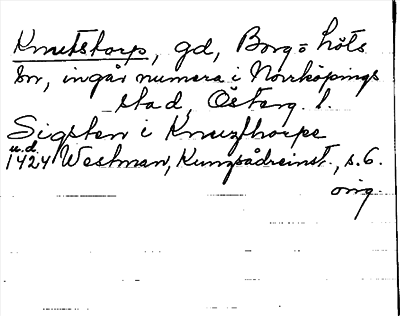 Knutstorp, gd, Borg=Löts
sn, ingår numera i Norrköpings
stad, Österg. l.
Sigsten i Knuzthorpe
u.d.
1424 Westman, Kungsådreinst., s. 6.
orig.